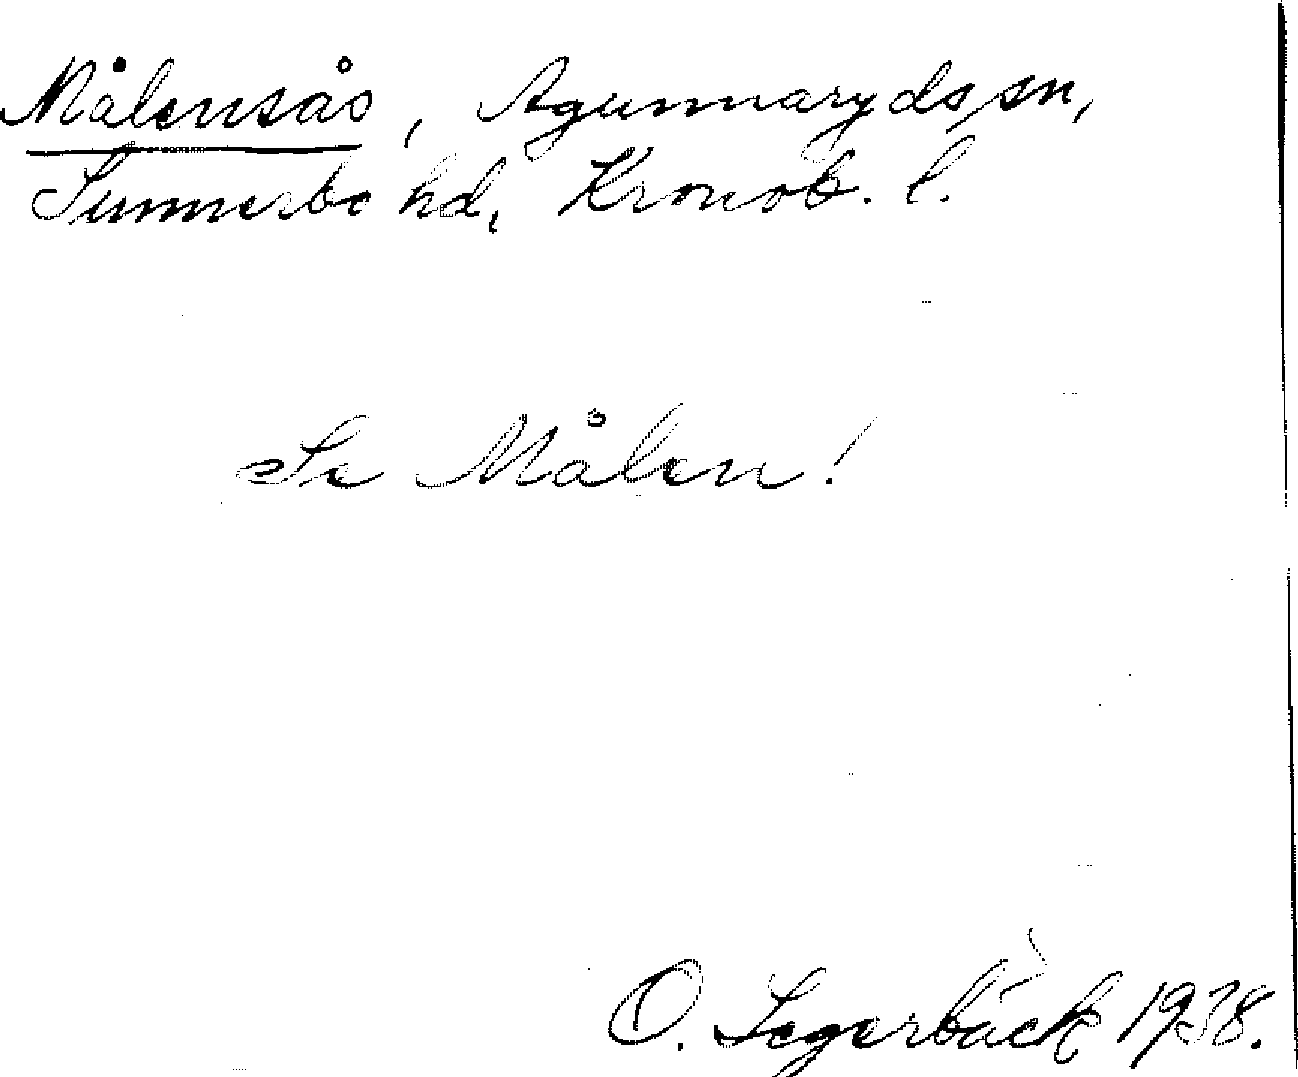 Målensås, Agunnaryds sn,
Sunnerbo hd, Kronob. l.
Se Målen!
O. Segerbäck 1938.